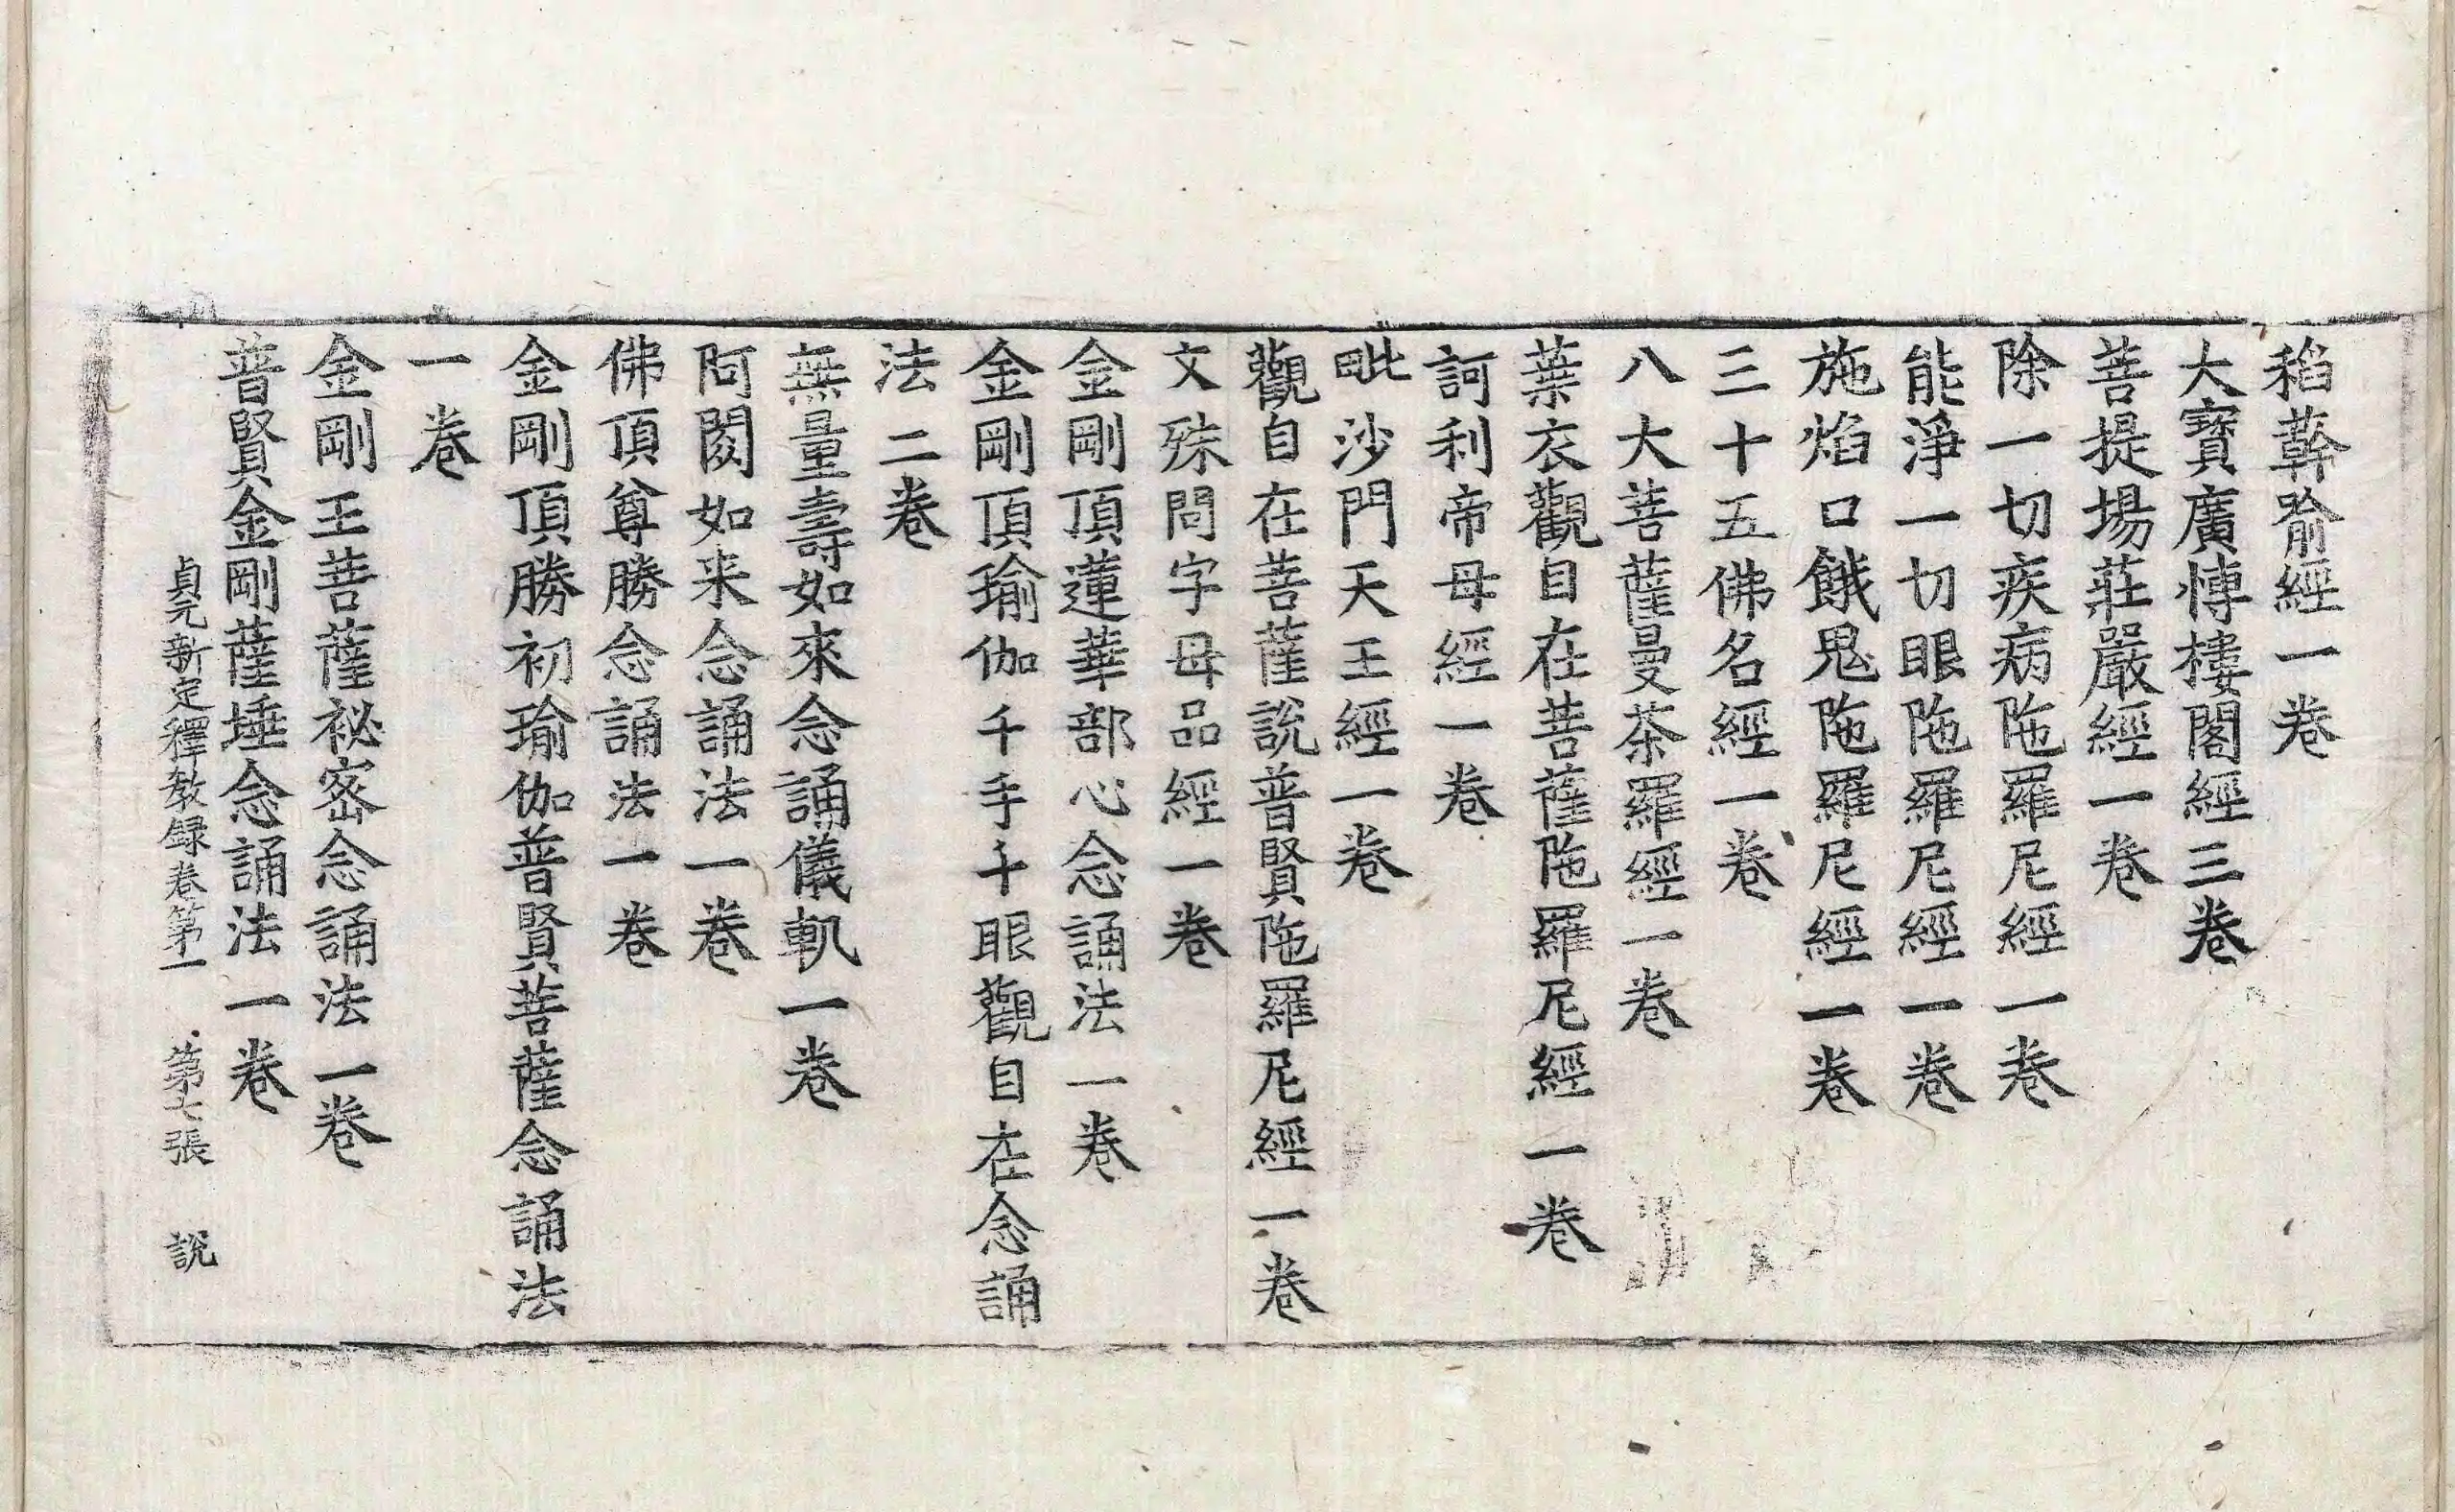 稻䕸喻經一卷
大寶廣愽樓閣經三卷
菩提場莊嚴經一卷
除一切疾病陁羅尼經一卷
能淨一切眼陁羅尼經一卷
施焰口餓鬼陁羅尼經一卷
三十五佛名經一卷
八大菩薩曼茶羅經一卷
葉衣觀自在菩薩陁羅尼經一卷
訶利帝母經一卷
毗沙門天王經一卷
觀自在菩薩說普賢陁羅尼經一卷
文殊問字母品經一卷
金剛頂蓮華部心念誦法一卷
金剛頂瑜伽千手千眼觀自在念誦
法二卷
無量壽如來念誦儀軌一卷
阿閦如来念誦法一卷
佛頂尊勝念誦法一卷
金剛頂勝初瑜伽普賢菩薩念誦法
一卷
金剛王菩薩祕密念誦法一卷
普賢金剛薩埵念誦法一卷
貞元新定釋教録卷第一 第七張 說